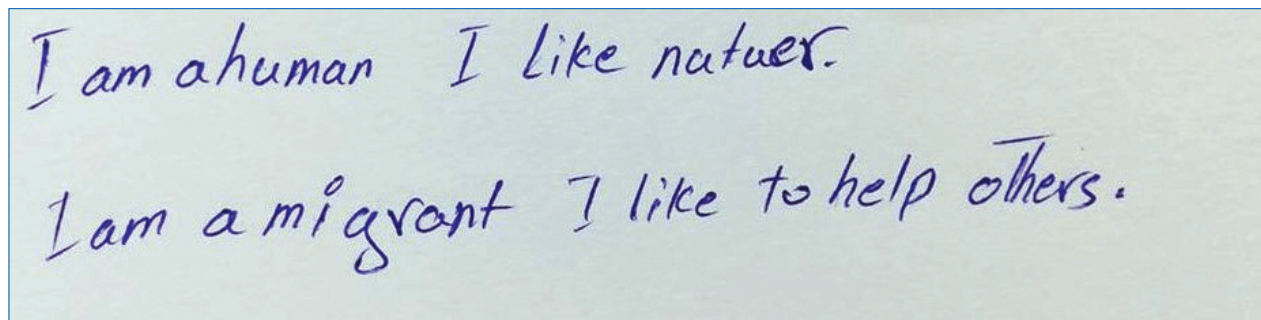 I am ahuman I like natuer.
I am a migrant I like to help others.